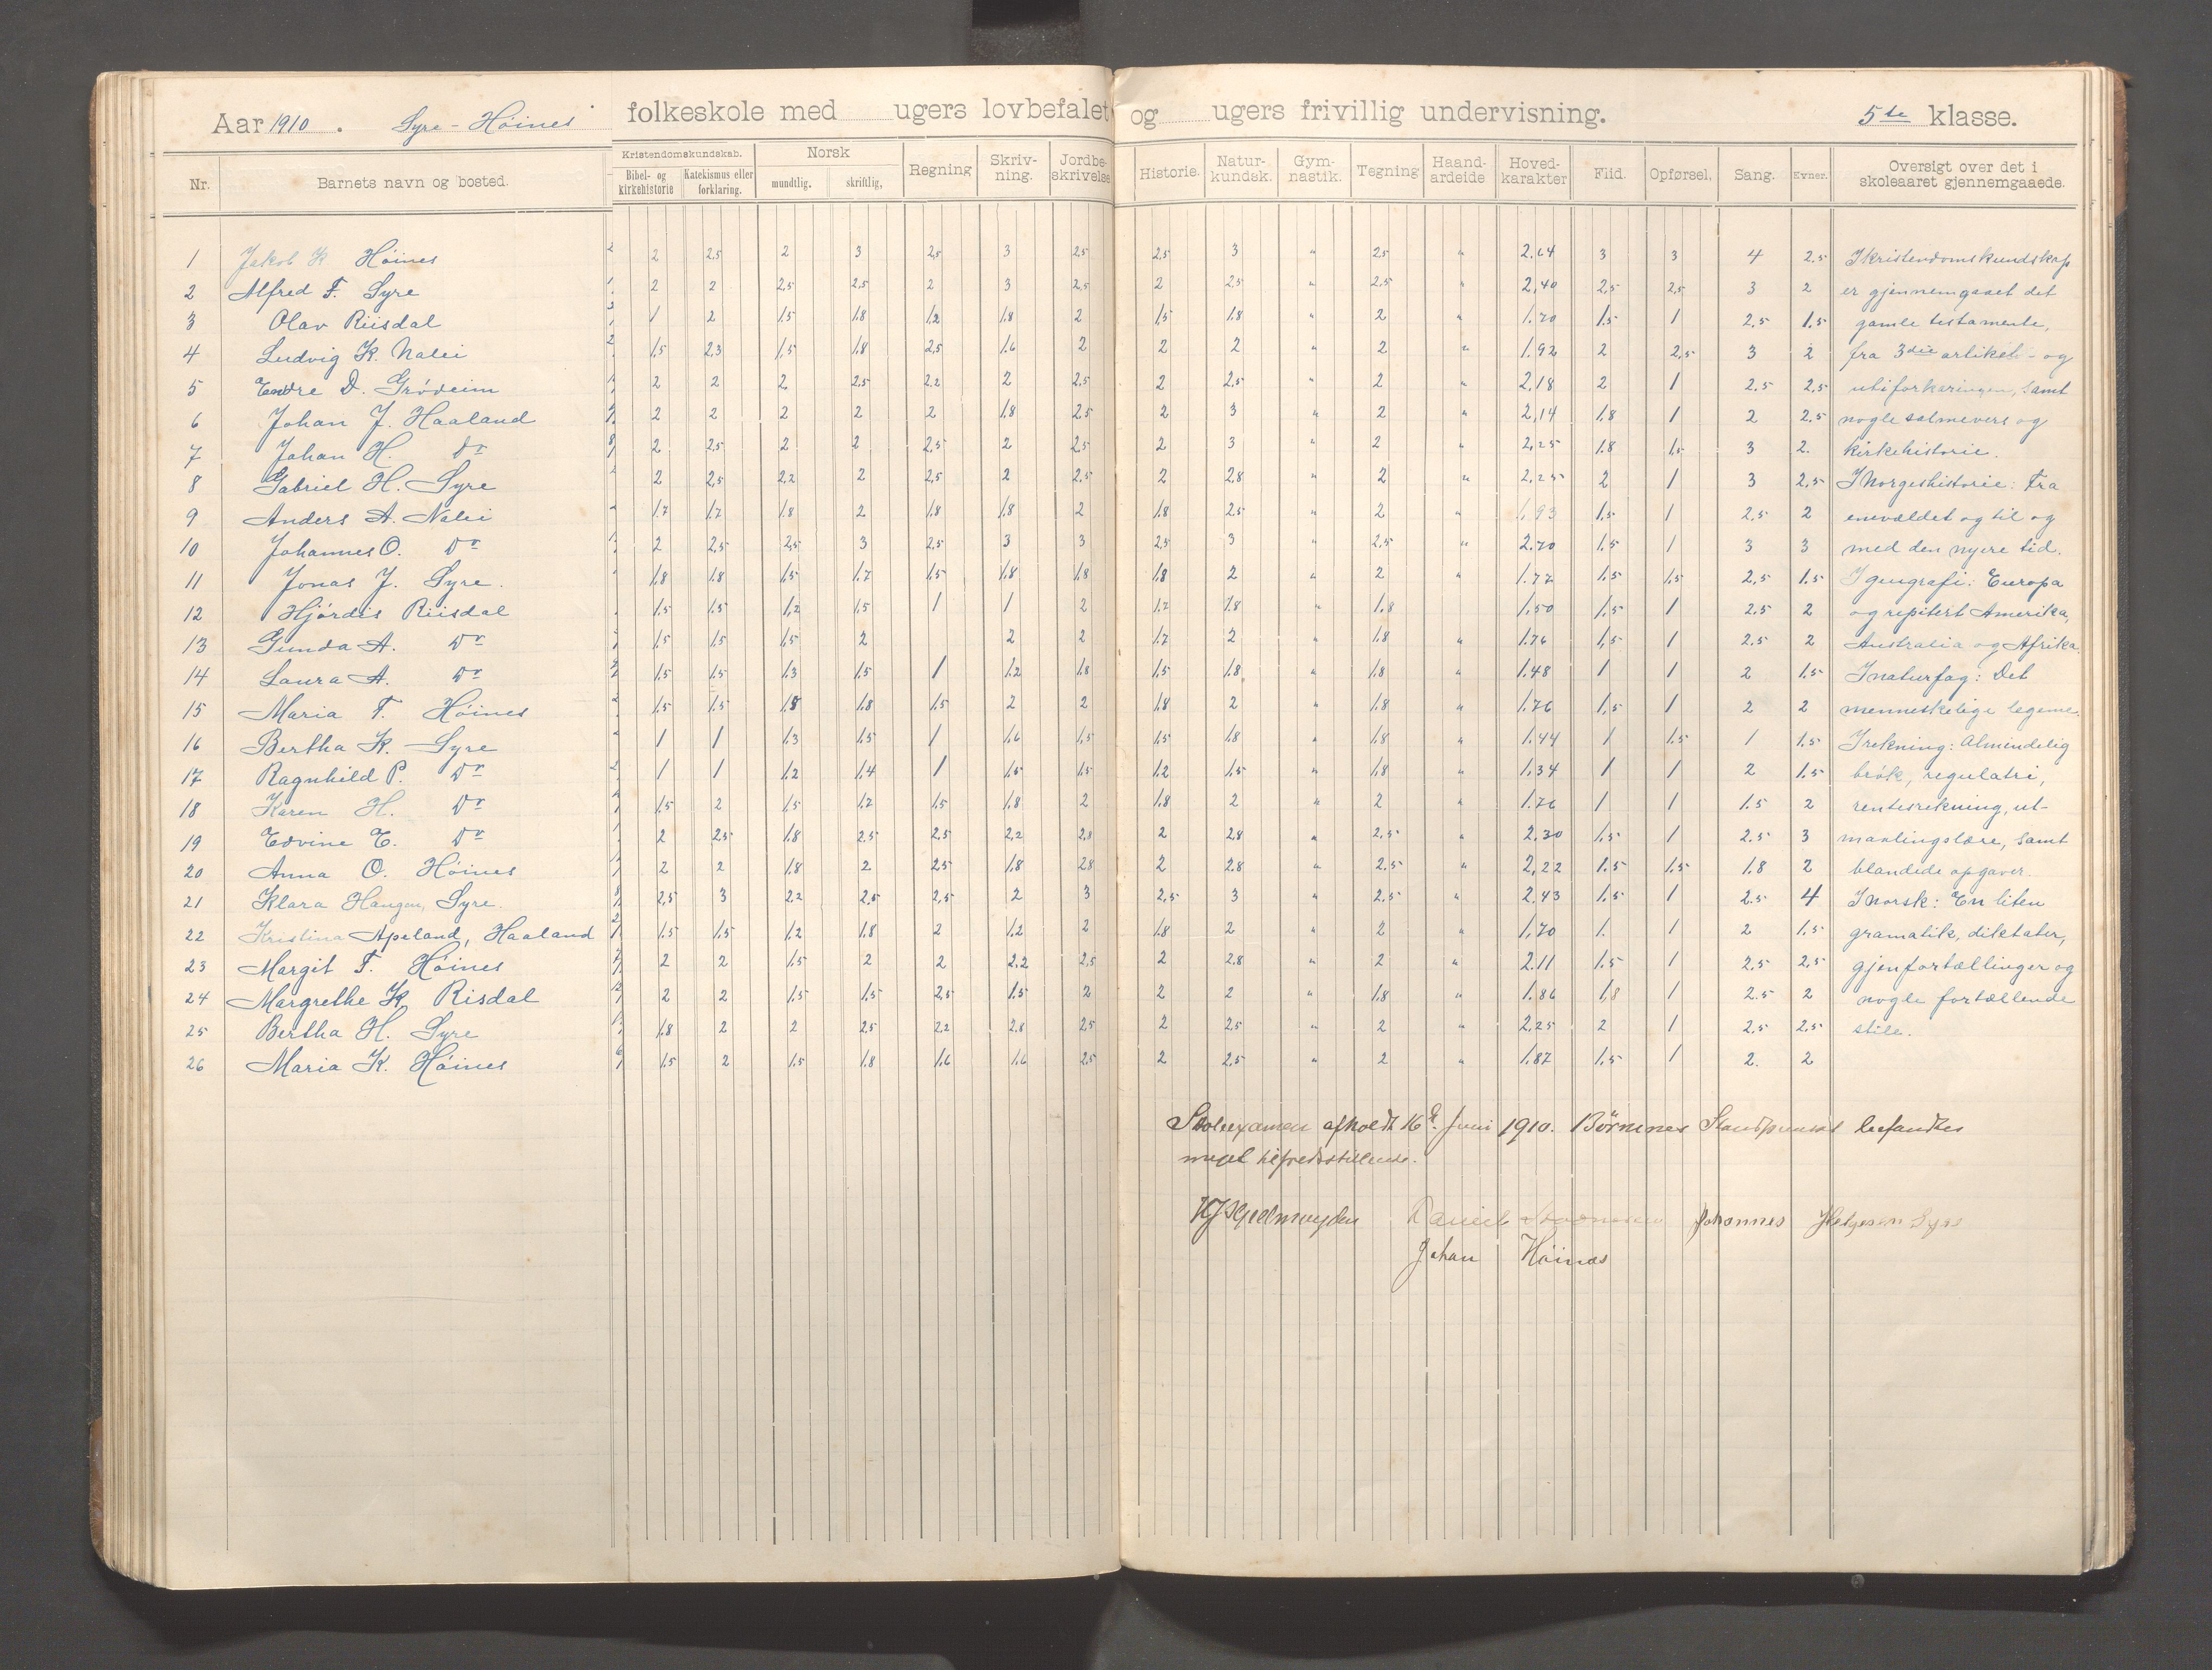 Aar 1910. Syre-Höines folkeskole med ugers lovbefalet og ugers frivillig undervisning. 5te klasse.
Nr. Barnets navn og bosted. Kristendomskundskab. Bibel- og kirkehistorie Katekismus eller forklaring. Norsk mundtlig. skriftlig, Regning Skriv-ning. Jordbe-skrivelse Historie. Natur-kundsk. Gym-nastik. Tegning Haand-arbeide Hoved-karakter Flid. Opførsel. Sang. Evner. Oversigt over det i skoleaaret gjennemgaaede.
1 Jakob K Höines 2 2,5 2 3 2,5 3 2,5 2,5 3 " 2,5 " 2.64 3 3 4 2.5 I kristendomskundskap
2 Alfred F. Syre 2 2 2,5 2,5 2 3 2,5 2 2,5 " 2,5 " 2,40 2,5 2,5 3 2 er gjennemgaaet det
3 Olav Riisdal 1 2 1.5 1.8 1,2 1.8 2 1,5 1.8 " 2 " 1.70 1.5 1 2,5 1.5 gamle testamente,
4 Ludvig K. Nalei 1,5 2,3 1,5 1,8 2,5 1.6 2 2 2 " 2 " 1.92 2 2,5 3 2 fra 3die artikel - og
5 Endre D. Grödeim 2 2 2 2.5 2,2 2 2,5 2 2,5 " 2 " 2,18 2 1 2.5 2,5 ut i forklaringen, samt
6 Johan J. Haaland 2 2 2 2 2 1,8 2,5 2 3 " 2 " 2,14 1.8 1 2 2.5 nogle salmevers og
7 Johan H. Do 2 2,5 2 2 2,5 2 2,5 2 3 " 2 " 2,25 1.8 1,5 3 2. kirkehistorie.
8 Gabriel H. Syre 2 2,5 2,2 2 2,5 2 2,5 2 2,8 " 2 " 2,25 2 1 3 2,5 I Norgeshistorie: Fra
9 Anders A. Nalei 1.7 1,7 1,8 2 1,8 1,8 2 1,8 2.5 " 2 " 1,93 1.5 1 2,5 2 enevældet og til og
10 Johannes O. Do 2 2,5 2,5 3 2,5 3 3 2,5 3 " 2,5 " 2.70 1.5 1 3 3 med den nyere tid.
11 Jonas J. Syre. 1,8 1.8 1,5 1.7 1,5 1,8 1,8 1,8 2 " 2 " 1.72 1.5 1,5 2,5 1.5 I geografi: Europa
12 Hjördis Riisdal 1.5 1,5 1,2 1,5 1 1 2 1.7 1.8 " 1,8 1,50 1.5 1 2.5 2 og repitert Amerika,
13 Gunda A. Do 1,5 1,5 1,5 2 2 2 1.7 2 " 1.8 " 1.76 1,5 1 2.5 2 Australia og Afrika.
14 Laura A. Do 1,5 1.5 1.3 1.5 1 1.2 1,8 1,5 1.8 " 1,8 " 1.48 1 1 2 1.5 I naturfag: Det
15 Maria T. Höines 1,5 1.5 1,8 1.8 1,5 2 2 1,8 2 " 1.8 " 1.76 1,5 1 2 2 menneskelige legeme.
16 Bertha K. Syre 1 1 1.3 1.5 1 1.6 1,5 1.5 1,8 " 1,8 " 1.44 1 1.5 1 1.5 I rekning: Almindelig
17 Ragnhild P. Do 1 1 1.2 1.4 1 1.5 1.5 1.2 1.5 " 1,8 " 1,34 1 1 2 1.5 brök, regulatri,
18 Karen H. Do 1.5 2 1,5 1.7 1,5 1.8 2 1.8 2 " 2 " 1.76 1 1 1.5 2 rentesrekning, ut-
19 Edvine E. Do 2 2,5 1.8 2.5 2,5 2,2 2,8 2 2,8 " 2,5 " 2.30 1.5 1 2.5 3 maalingslære, samt
20 Anna O. Höines 2 2 1,8 2 2,5 1,8 2,8 2 2.8 " 2.5 " 2,22 1.5 1,5 1.8 2 blandede opgaver.
21 Klara Haugen, Syre. 2,5 3 2,2 2,5 2,5 2 3 2,5 3 " 2.5 " 2.43 1.5 1 2.5 4 I norsk: En liten
22 Kristina Apeland, Haaland 1.5 1,5 1,2 1.8 2 1.2 2 1,8 2 " 2 " 1,70 1. 1 2 1,5 gramatik, diktater,
23 Margit T. Höines 2 2 1.5 2 2 2,2 2,5 2 2.8 " 2 " 2.11 1.5 1 2.5 2,5 gjenfortællinger og
24 Margrethe K. Risdal 2 2 1.5 1.5 2,5 1.5 2 2 2 " 1,8 " 1.86 1,8 1 2.5 2 nogle fortællende
25 Bertha H. Syre 1.8 2 2 2,5 2,2 2.8 2,5 2 2,5 " 2 " 2.25 2 1 2,5 2,5 stile.
26 Maria K. Höines 1.5 2 1.5 1.8 1.6 1.6 2,5 2 2,5 " 2 " 1.87 1.5 1 2. 2
Skoleexamen afholdt 16de Juni 1910. Börnenes Standpunkt befandtes
meget tilfredsstillende.
Daniel Johannes Helgesen Syre
Johan Höines